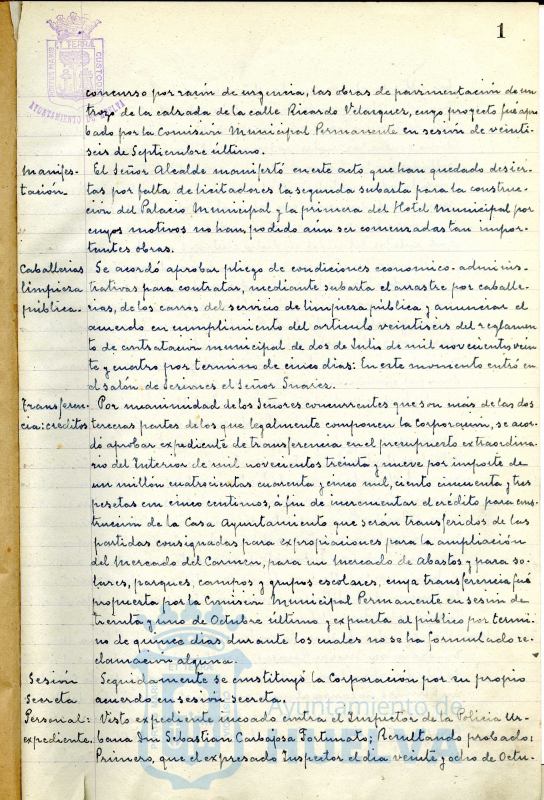 1
PORTUS MARIS ET TERRAE CUSTODIA
AYUNTAMIENTO DE HUELVA
concurso por razón de urgencia, las obras de pavimentación de un
trozo de la calzada de la calle Ricardo Velazquez, cuyo proyecto fué apro-
bado por la Comisión Municipal Permanente en sesión de veinti-
seis de Septiembre último.
Manifes-
tación.
El Señor Alcalde manifestó en este acto que han quedado desier-
tas por falta de licitadores la segunda subasta para la construc-
cion del Palacio Municipal y la primera del Hotel Municipal por
cuyos motivos no han podido aún ser comenzadas tan impor-
tantes obras.
Caballerias
limpieza
pública.
Se acordó aprobar pliego de condiciones economico-adminis-
trativas para contratar, mediante subasta el arrastre por caballe-
rias, de los carros del servicio de limpieza pública y anunciar el
acuerdo en cumplimiento del articulo veintiseis del reglamen-
to de contratacion municipal de dos de Julio de mil novecientos vein-
te y cuatro por termino de cinco dias. En este momento entró en
el salón de sesiones el Señor Suarez.
Transferen-
cia: créditos
Por unanimidad de los Señores concurrentes que son más de las dos
terceras partes de los que legalmente componen la Corporación, se acor-
dó aprobar expediente de transferencia en el presupuesto extraordina-
rio del Interior de mil novecientos treinta y nueve por importe de
un millón cuatrocientas cuarenta y cinco mil, ciento cincuenta y tres
pesetas con cinco centimos, á fin de incrementar el crédito para cons-
trucción de la Casa Ayuntamiento que serán transferidos de las
partidas consignadas para expropiaciones para la ampliación
del Mercado del Carmen, para un Mercado de Abastos y para so-
lares, parques, campos y grupos escolares, cuya transferencia fué
propuesta por la Comision Municipal Permanente en sesión de
treinta y uno de Octubre último y expuesta al público por termi-
no de quince dias durante los cuales no se ha formulado re-
clamacion alguna.
Sesión
Secreta
Seguidamente se constituyó la Corporación por su propio
acuerdo en sesión secreta.
Personal:
expediente.
Visto expediente incoado contra el Inspector de la Policia Ur-
bana Dn Sebastian Carbajosa Fortunato; Resultando probado:
Primero, que el expresado Inspector el dia veinte y ocho de Octu-
Ayuntamiento de
HUELVA